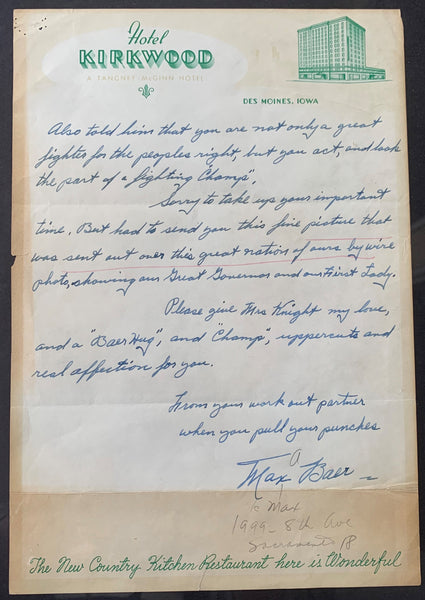 Hotel
KIRKWOOD
A TANGNEY-McGINN HOTEL
DES MOINES, IOWA
Also told him that you are not only a great
fighter for the peoples right, but you act, and look
the part of a fighting Champ".
Sorry to take up your important
time. But had to send you this fine picture that
was sent out over this great nation of ours by wire
photo, showing our Great Governor and our First Lady.
Please give Mrs Knight my love,
and a "Baer Hug", and "Champ", uppercuts and
real affection for you.
From your work out partner
when you pull your punches
Max Baer
Max
1999- 8th Ave
Sacramento 18
The New Country Kitchen Restaurant here is Wonderful